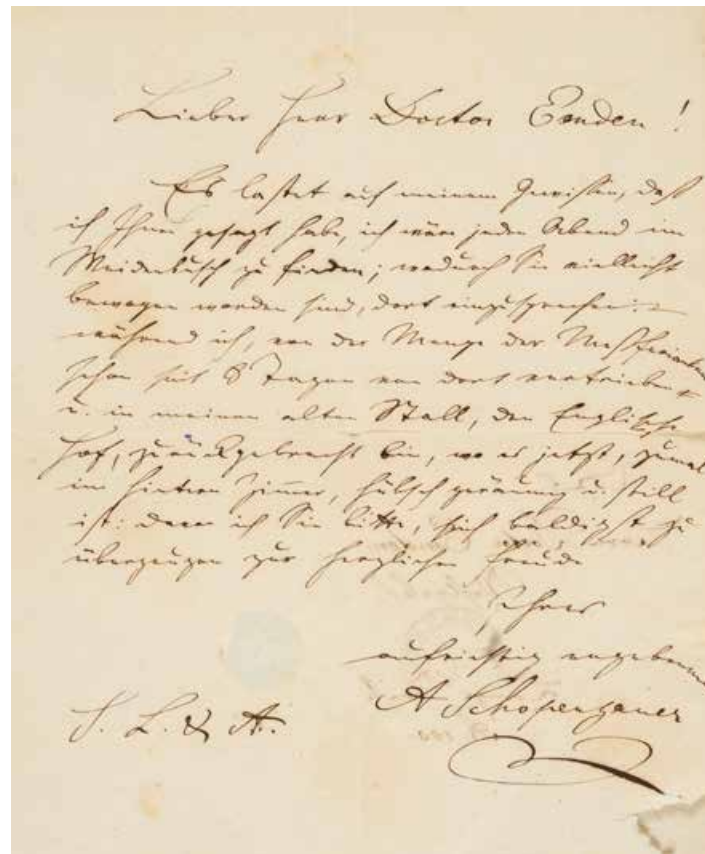 Lieber Herr Doctor Emden!
Es lastet auf meinem Gewissen, daß
ich Ihnen gesagt habe, ich wäre jeden Abend im
Weidenbusch zu finden; wodurch Sie vielleicht
bewogen worden sind, dort einzusprechen: –
während ich, von der Menge der Meßfremden
schon seit 8 Tagen von dort vertrieben
u. in meinen alten Stall, den Englische
Hof, zurückgebracht bin, wo es jetzt, zumal
im hintern Zimmer, hübsch geräumig u. still
ist: davon ich Sie bitte, sich baldigst zu
überzeugen zur herzlichen Freude
Ihres
aufrichtig ergebenen
A Schopenhauer
S. L. & A.